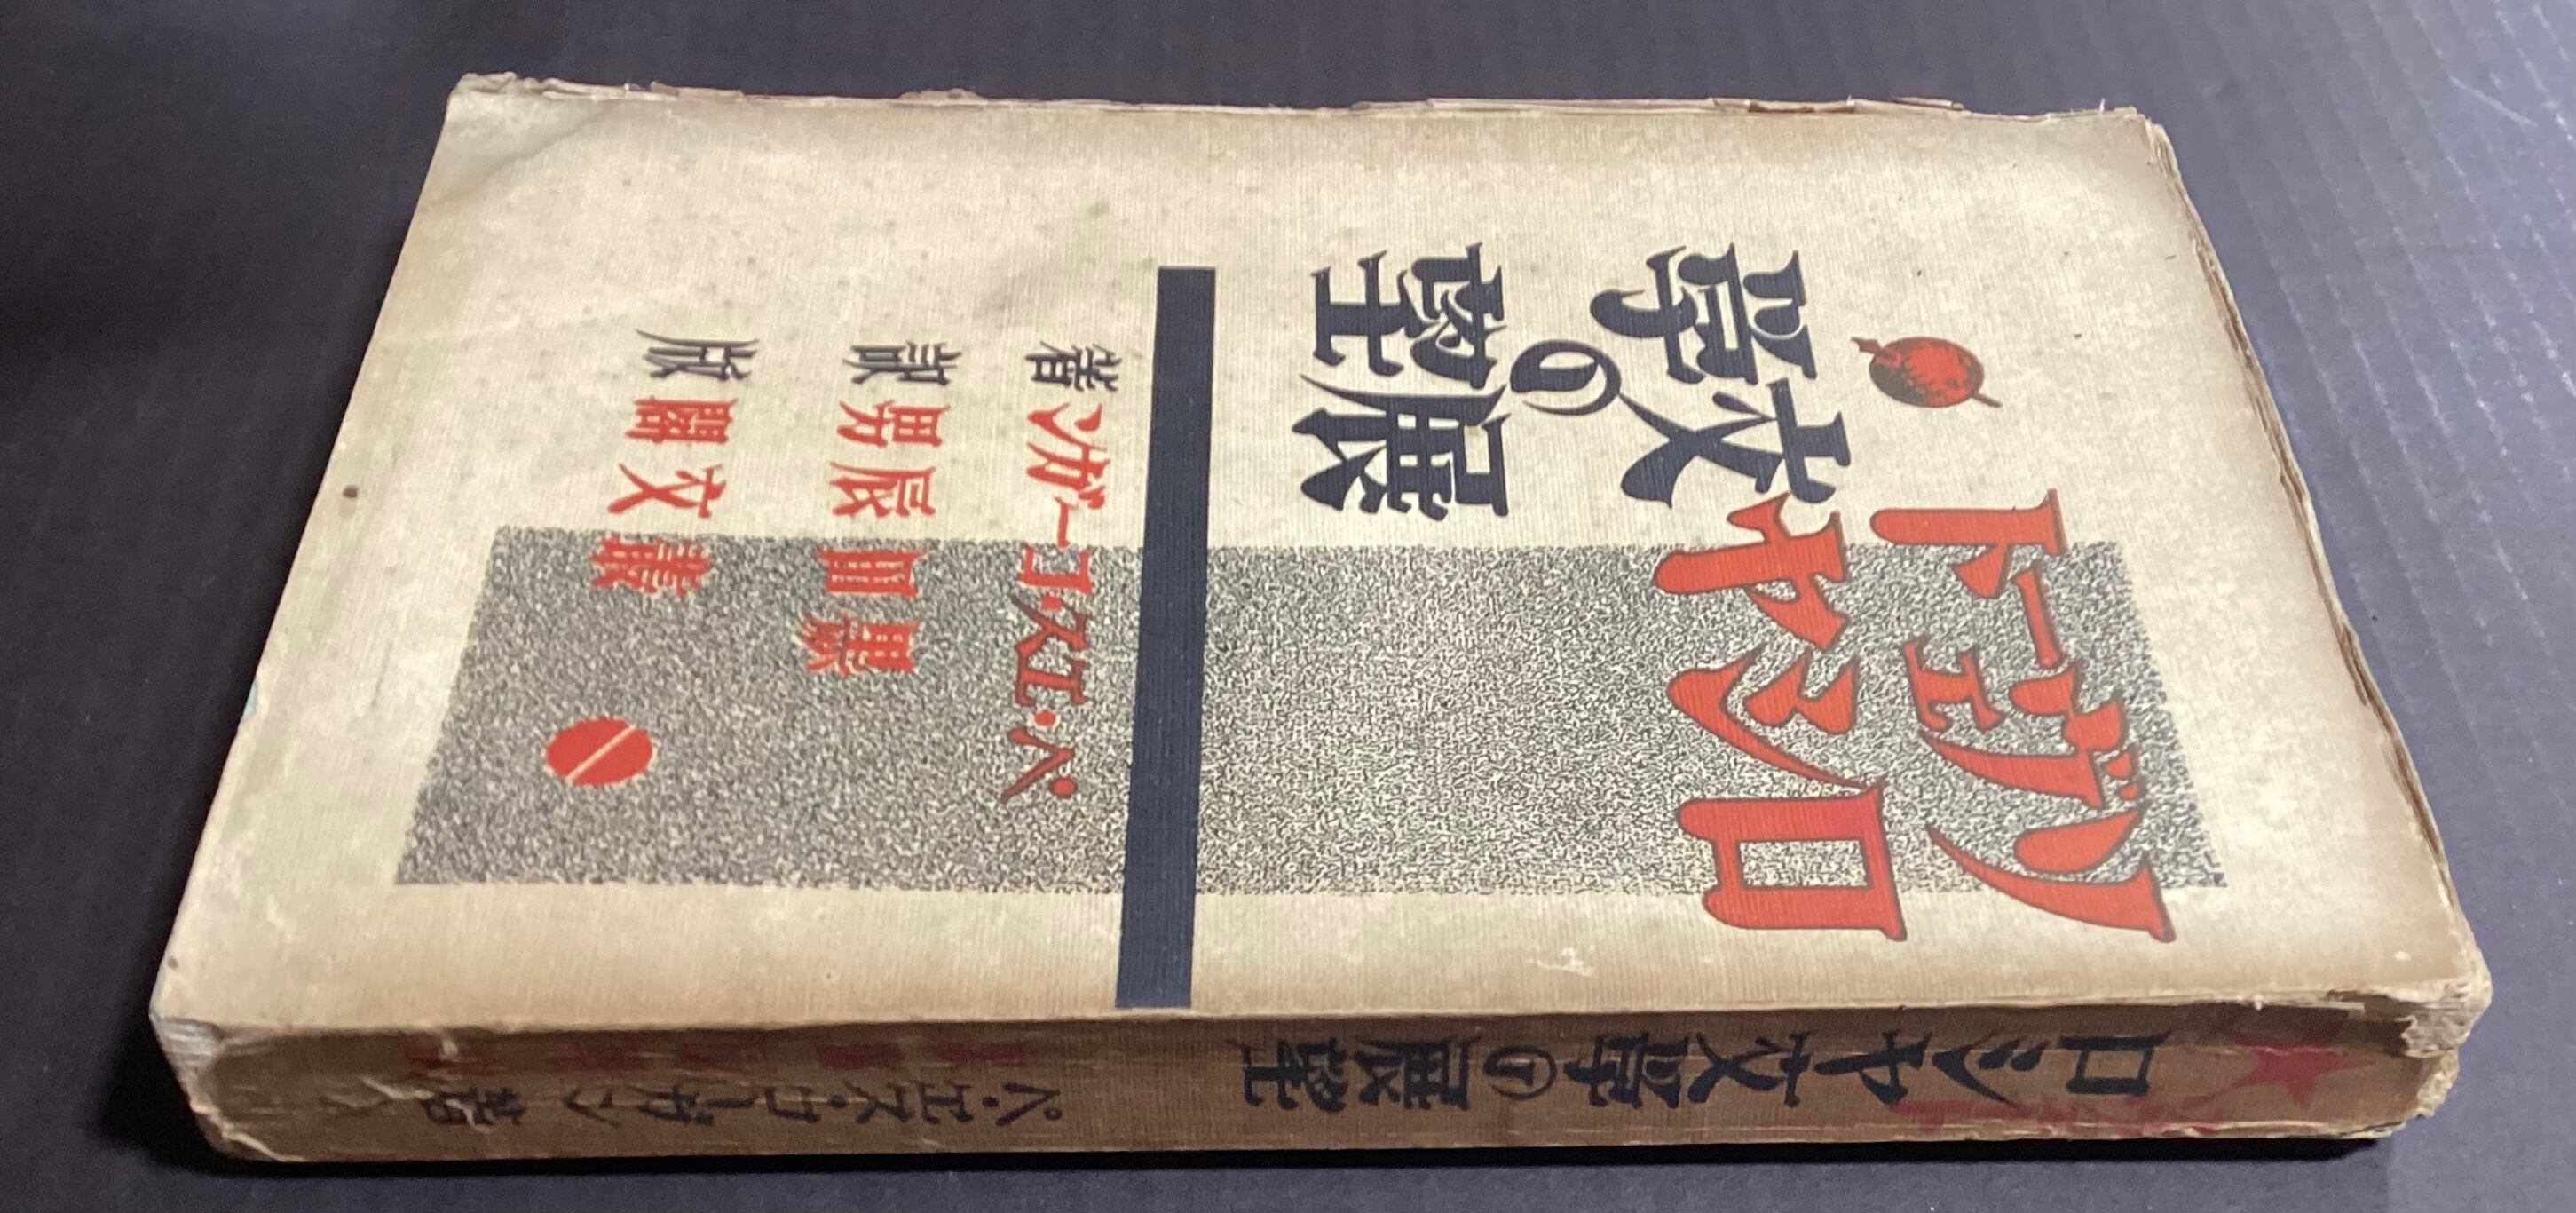 ソヴェート
ロシヤ文學の
展望
ペ・エス・コーガン著
黒田辰男訳
叢文閣版
ロシヤ文學の展望
ペ・エス・コーガン著